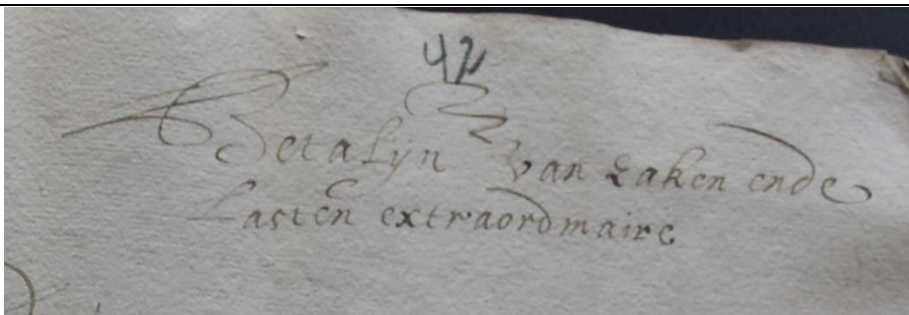 42
Betalyn van zaken ende
Lasten extraordinaire